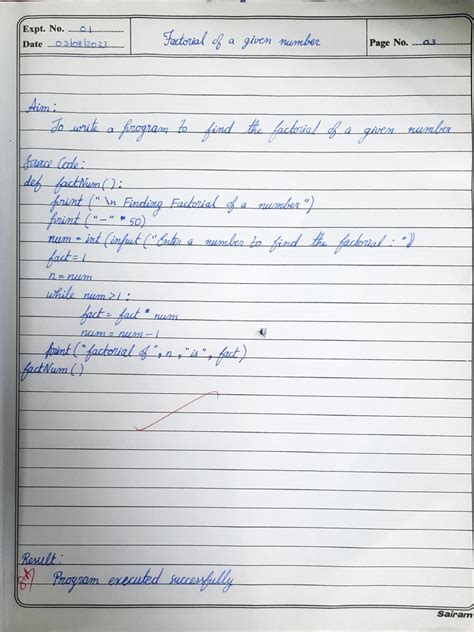 Expt. No. 01
Date 03/08/2023
Factorial of a given number
Page No. 03
Aim:
To write a program to find the factorial of a given number
Source Code:
def factNum():
print ("\n Finding Factorial of a number")
print ("-" * 50)
num = int (input ("Enter a number to find the factorial : "))
fact = 1
n = num
while num > 1 :
fact = fact * num
num = num - 1
print ("factorial of", n, "is", fact)
factNum()
Result:
Program executed successfully
Sairam